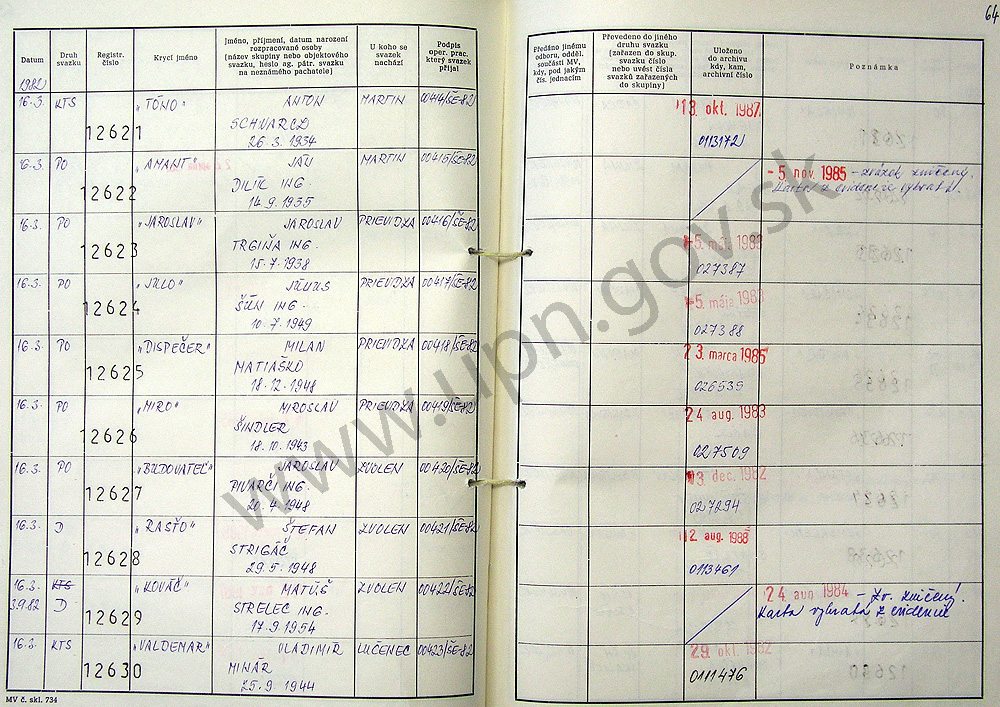 64
Datum
Druh svazku
Registr. číslo
Krycí jméno
Jméno, příjmení, datum narození
rozpracované osoby
(název skupiny nebo objektového
svazku, heslo ag. pátr. svazku
na neznámého pachatele)
U koho se svazek nachází
Podpis oper. prac. který svazek přijal
Předáno jinému
odboru, odděl.
součásti MV,
kdy, pod jakým
čís. jednacím
Převedeno do jiného
druhu svazku
(zařazen do skup.
svazku číslo
nebo uvést čísla
svazků zařazených
do skupiny)
Uloženo
do archivu
kdy, kam,
archivní číslo
Poznámka
1982
16.3. KTS 12621 „TÓNO" ANTON MARTIN 00414/ŠE-82 13. okt. 1987
SCHVARCZ
26.3.1934 0113172
16.3. PO 12622 „AMANT" JÁN MARTIN 00415/ŠE-82 - 5. nov. 1985 - zväzok zničený.
DILÍK ING. Karta z evidencie vybratá.
14.9.1935
16.3. PO 12623 „JAROSLAV" JAROSLAV PRIEVIDZA 00416/ŠE-82 - 5. mája 1983
TRGIŇA ING.
15.7.1938 027387
16.3. PO 12624 „JULO" JÚLIUS PRIEVIDZA 00417/ŠE-82 - 5. mája 1983
ŠÚN ING.
10.7.1949 027388
16.3. PO 12625 „DISPEČER" MILAN PRIEVIDZA 00418/ŠE-82 23. marca 1985
MATIAŠKO
18.12.1948 026539
16.3. PO 12626 „MIRO" MIROSLAV PRIEVIDZA 00419/ŠE-82 24 aug. 1983
ŠINDLER
18.10.1943 027509
16.3. PO 12627 „BUDOVATEĽ" JAROSLAV ZVOLEN 00420/ŠE-82 13. dec. 1982
PIVARČI ING.
20.4.1948 027294
16.3. D 12628 „RASŤO" ŠTEFAN ZVOLEN 00421/ŠE-82 12. aug. 1988
STRIGÁČ
29.5.1948 0113461
16.3. KTS 12629 „KOVÁČ" MATÚŠ ZVOLEN 00422/ŠE-82 24 aug 1984 - Zv. zničený!
3.9.82 D STRELEC ING. Karta vybratá z evidencie
17.9.1954
16.3. KTS 12630 „VALDEMAR" VLADIMÍR LUČENEC 00423/ŠE-82 29. okt. 1982
MINÁR
25.9.1944 0111476
MV č. skl. 734
www.upn.gov.sk